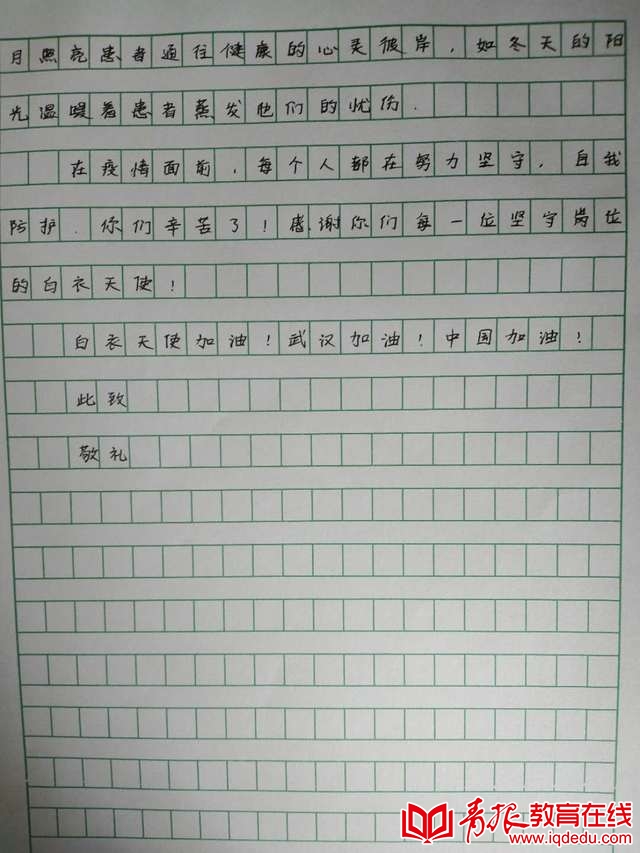 月照亮患者通往健康的心灵彼岸，如冬天的阳
光温暖着患者蒸发他们的忧伤.
在疫情面前，每个人都在努力坚守，自我
防护.你们辛苦了！感谢你们每一位坚守岗位
的白衣天使！
白衣天使加油！武汉加油！中国加油！
此致
敬礼
青报教育在线
www.iqdedu.com